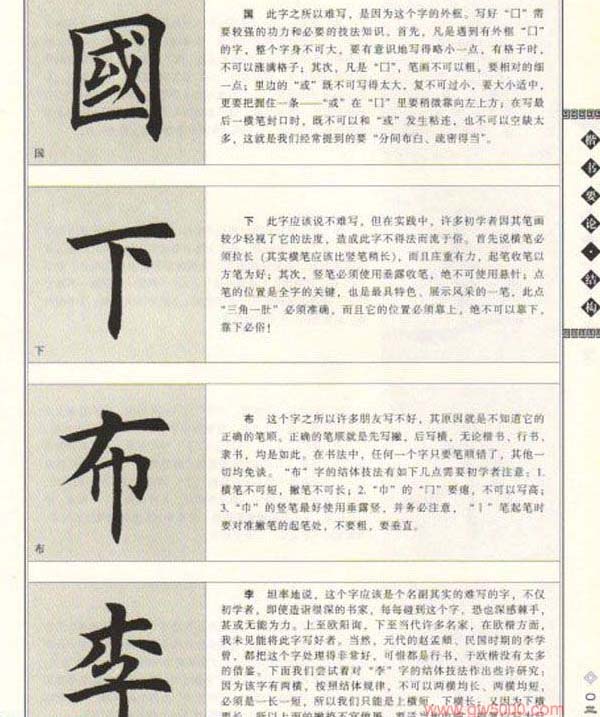 國
国
国 此字之所以难写，是因为这个字的外框。写好“囗”需
要较强的功力和必要的技法知识。首先，凡是遇到有外框“囗”
的字，整个字身不可大，要有意识地写得略小一点，有格子时，
不可以涨满格子；其次，凡是“囗”，笔画不可以粗，要相对的细
一点；里边的“或”既不可写得太大，复不可过小，要大小适中，
更要把握住一条——“或”在“囗”里要稍微靠向左上方；在写最
后一横笔封口时，既不可以和“或”发生粘连，也不可以空缺太
多，这就是我们经常提到的要“分间布白、疏密得当”。
下
下
下 此字应该说不难写，但在实践中，许多初学者因其笔画
较少轻视了它的法度，造成此字不得法而流于俗。首先说横笔必
须拉长（其实横笔应该比竖笔稍长），而且庄重有力，起笔收笔以
方笔为好；其次，竖笔必须使用垂露收笔，绝不可使用悬针；点
笔的位置是全字的关键，也是最具特色、展示风采的一笔，此点
“三角一肚”必须准确，而且它的位置必须靠上，绝不可以靠下，
靠下必俗！
布
布
布 这个字之所以许多朋友写不好，其原因就是不知道它的
正确的笔顺。正确的笔顺就是先写撇，后写横，无论楷书、行书、
隶书，均是如此。在书法中，任何一个字只要笔顺错了，其他一
切均免谈。“布”字的结体技法有如下几点需要初学者注意：1.
横笔不可短，撇笔不可长；2.“巾”的“冂”要瘦，不可以写高；
3.“巾”的竖笔最好使用垂露竖，并务必注意，“丨”笔起笔时
要对准撇笔的起笔处，不要粗，要垂直。
李
李 坦率地说，这个字应该是个名副其实的难写的字，不仅
初学者，即使造诣很深的书家，每每碰到这个字，恐也深感棘手，
甚或无能为力。上至欧阳询，下至当代许多名家，在欧楷方面，
我未见能将此字写好者。当然，元代的赵孟頫、民国时期的李学
曾，都把这个字处理得非常好，可惜都是行书，于欧楷没有太多
的借鉴。下面我们尝试着对“李”字的结体技法作出些许研究：
因为该字有两横，按照结体规律，不可以两横均长、两横均短，
必须是一长一短，所以我们只能是上横短，下横长；又因为下横
楷书要论·结构